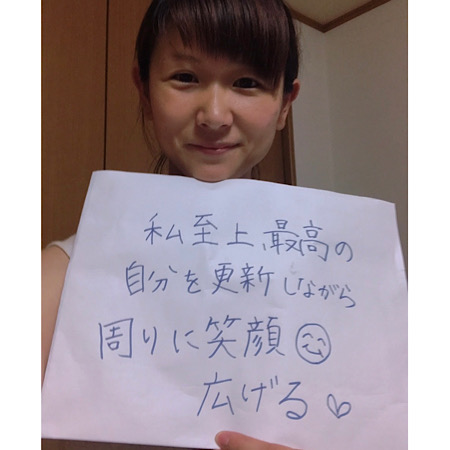 私至上、最高の
自分を更新しながら
周りに笑顔
広げる